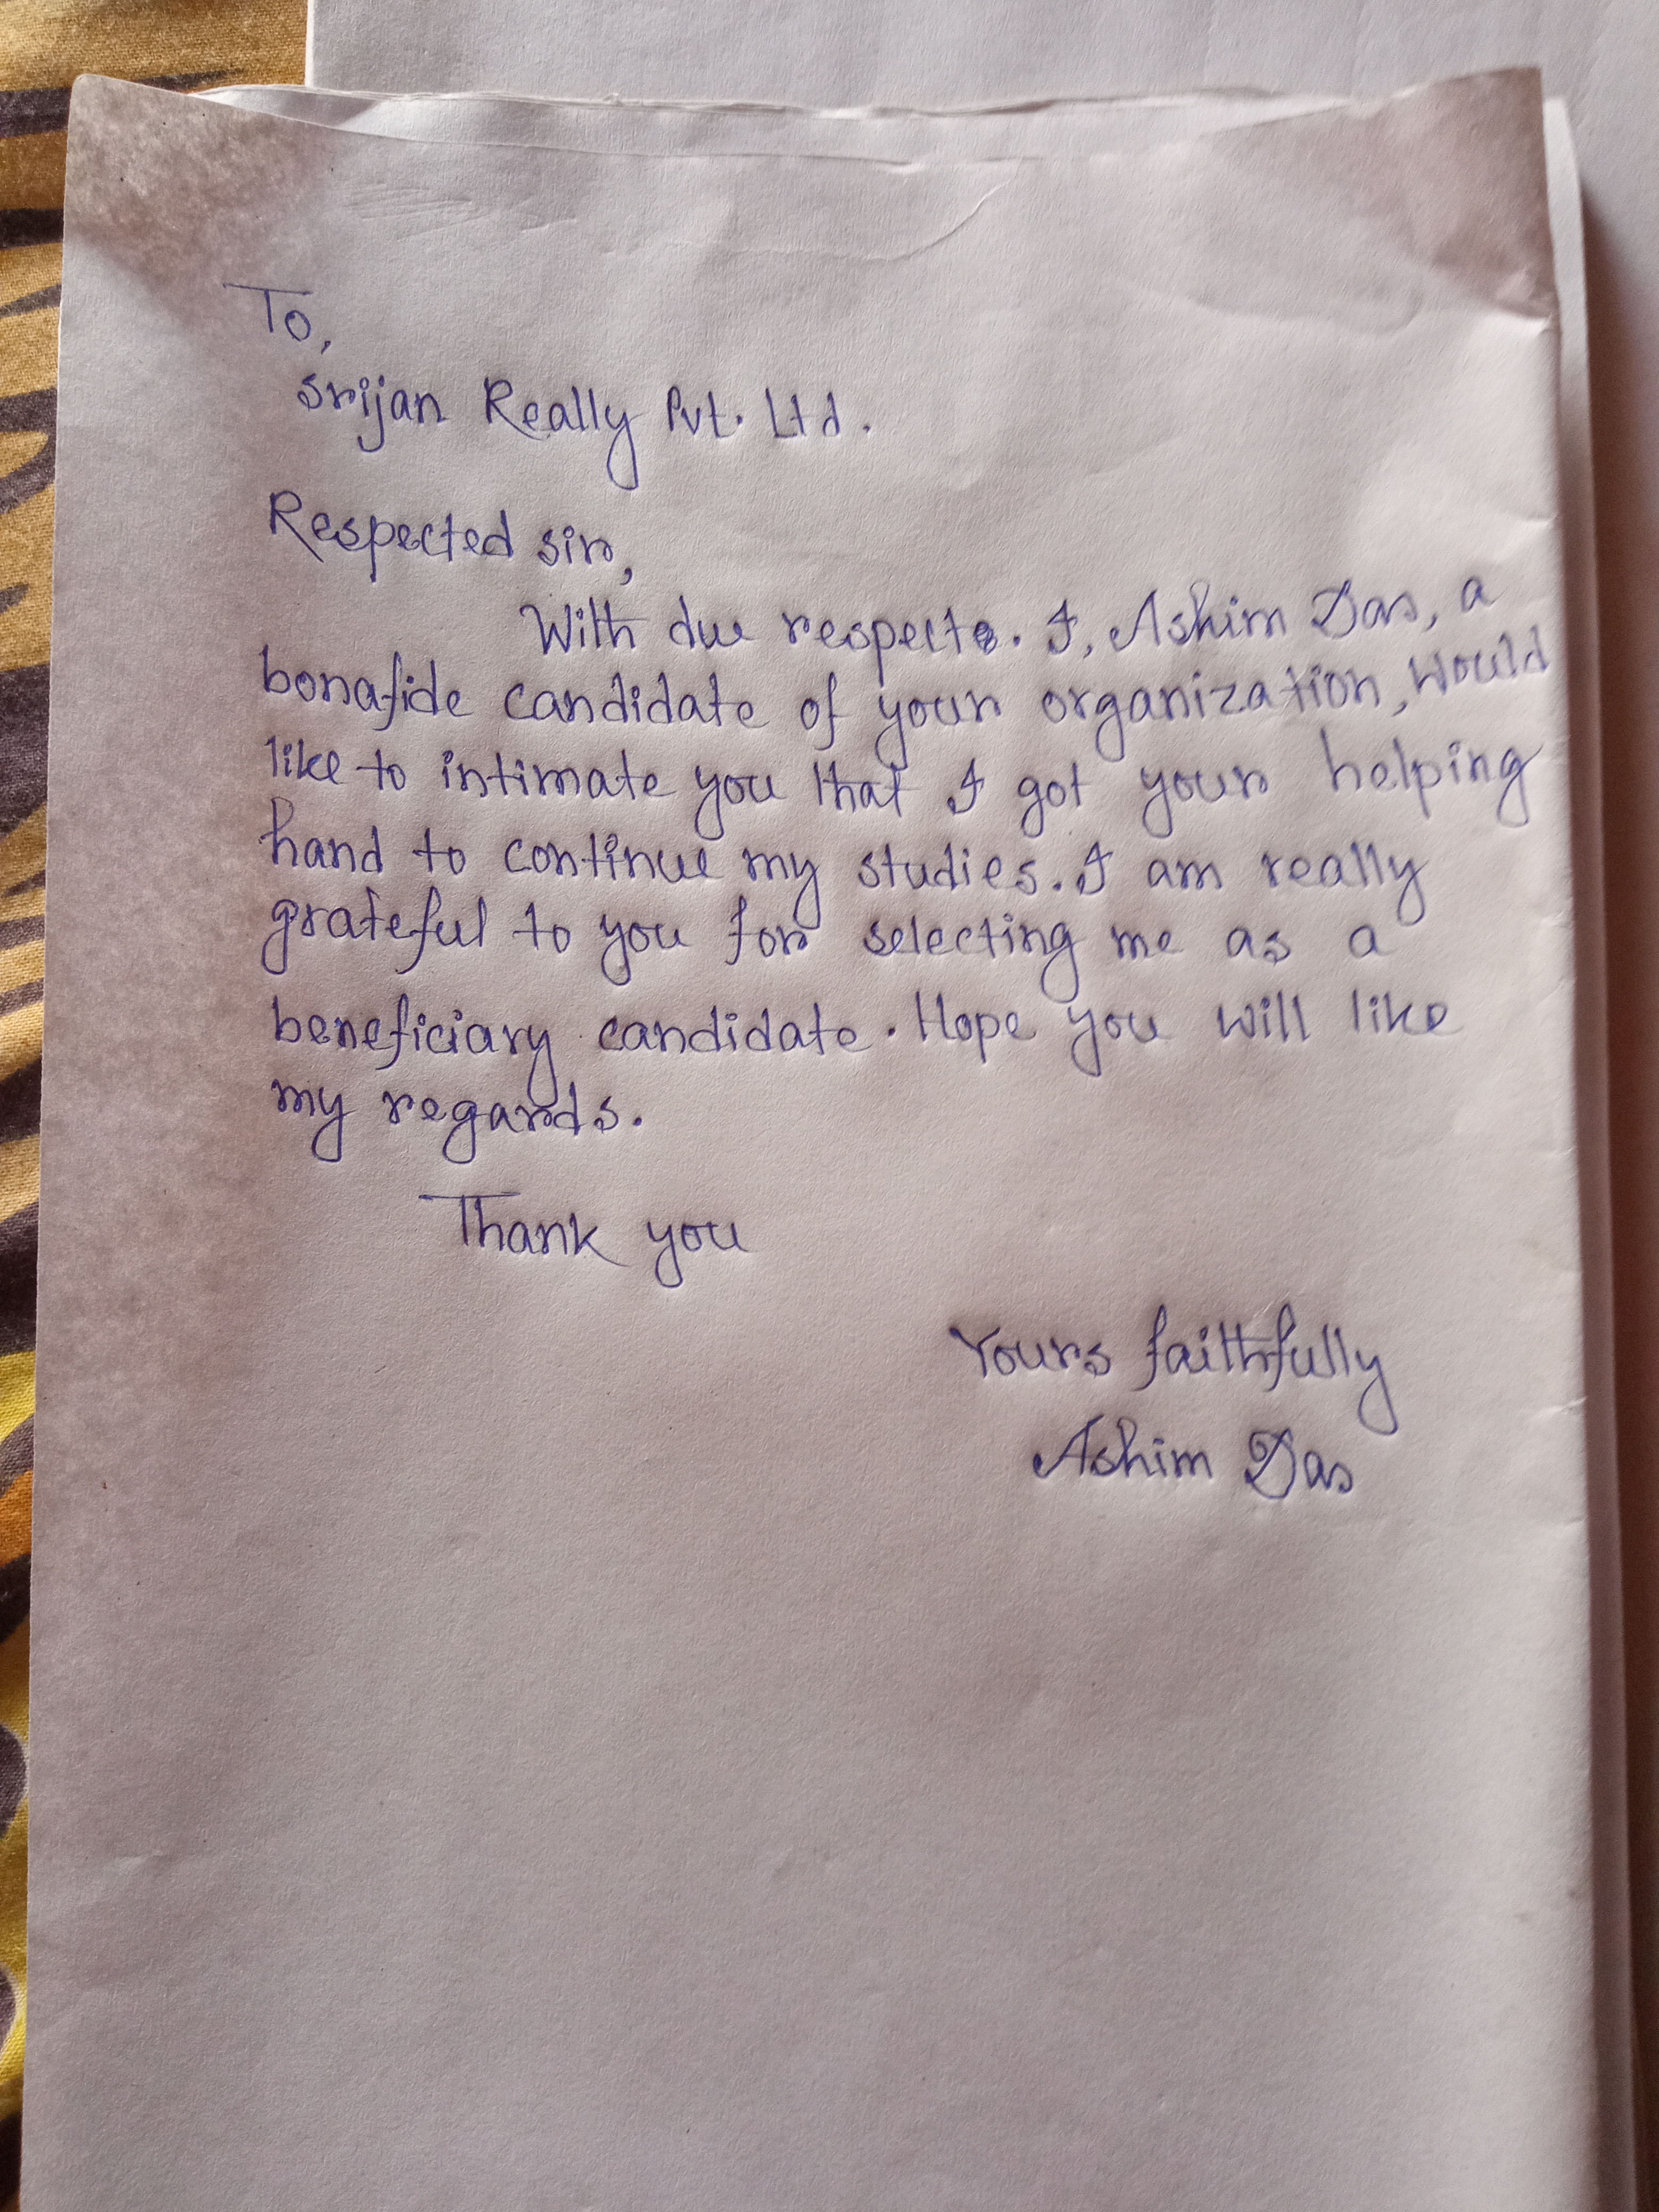 To,
Srijan Really Pvt. Ltd.
Respected sir,
With due respect. I, Ashim Das, a
bonafide candidate of your organization, would
like to intimate you that I got your helping
hand to continue my studies. I am really
grateful to you for selecting me as a
beneficiary candidate. Hope you will like
my regards.
Thank you
Yours faithfully
Ashim Das